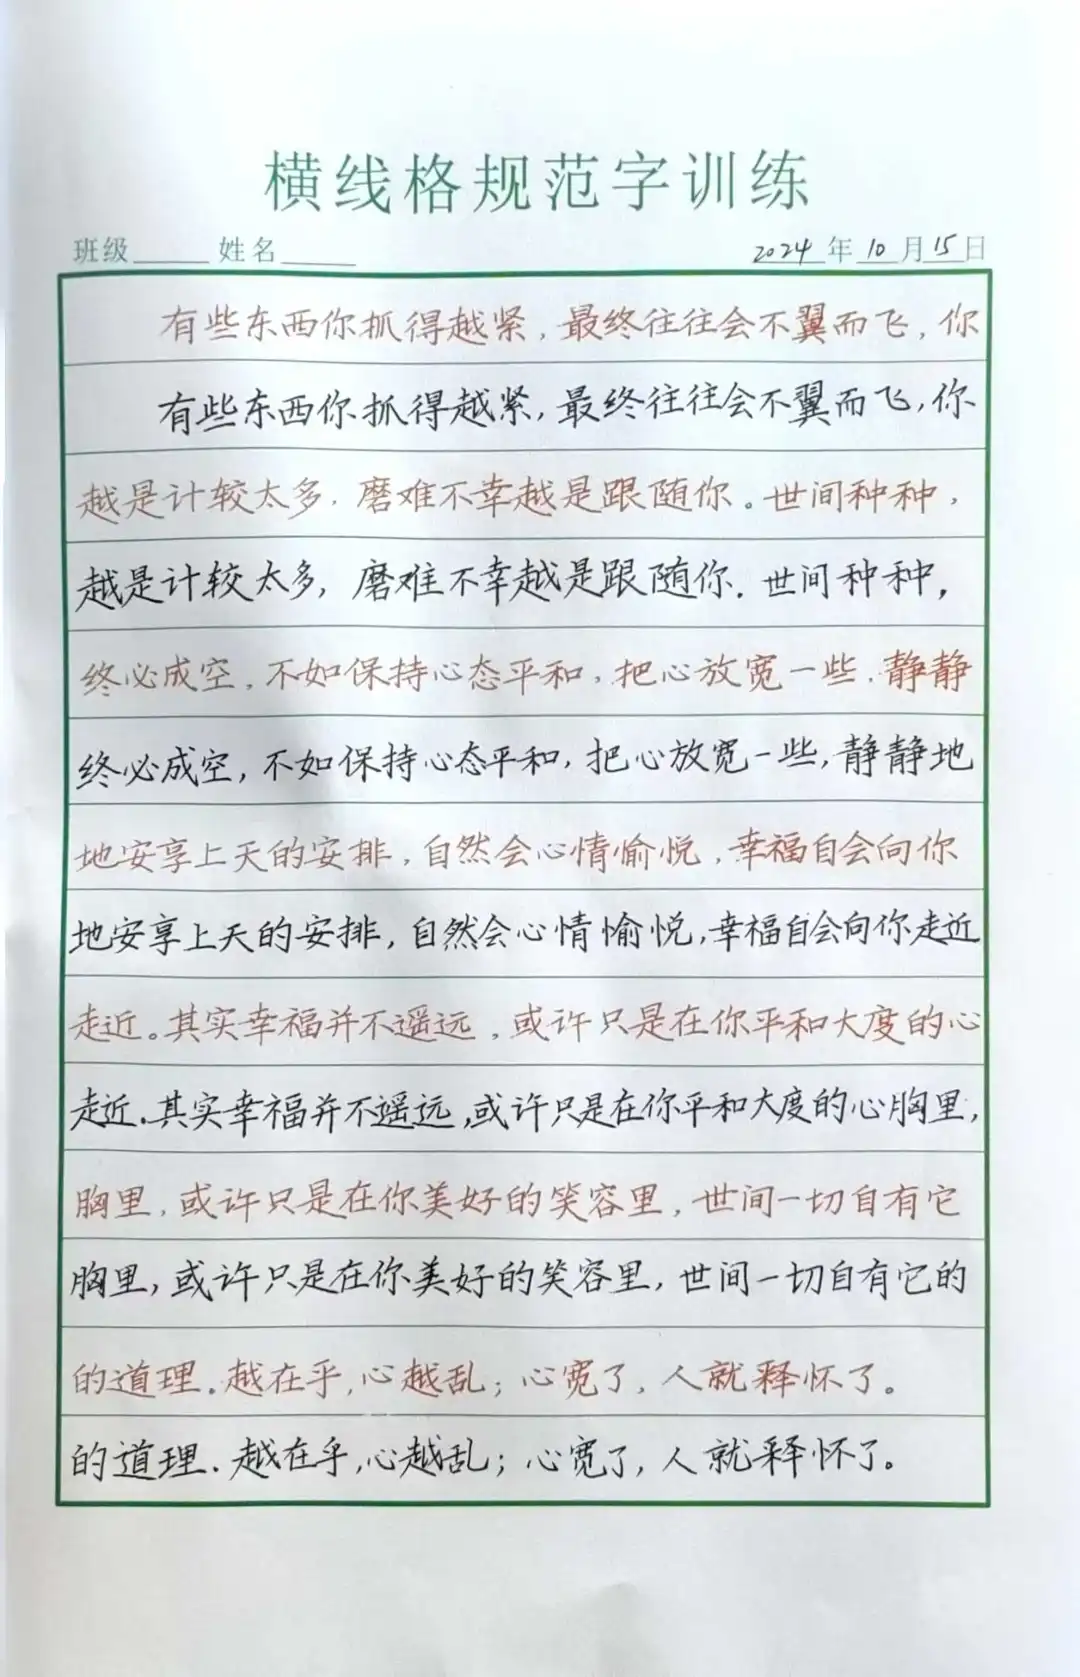 横线格规范字训练
班级 姓名 2024年10月15日
有些东西你抓得越紧，最终往往会不翼而飞，你
有些东西你抓得越紧，最终往往会不翼而飞，你
越是计较太多，磨难不幸越是跟随你。世间种种，
越是计较太多，磨难不幸越是跟随你．世间种种，
终必成空，不如保持心态平和，把心放宽一些，静静
终必成空，不如保持心态平和，把心放宽一些，静静地
地安享上天的安排，自然会心情愉悦，幸福自会向你
地安享上天的安排，自然会心情愉悦，幸福自会向你走近
走近。其实幸福并不遥远，或许只是在你平和大度的心
走近．其实幸福并不遥远，或许只是在你平和大度的心胸里，
胸里，或许只是在你美好的笑容里，世间一切自有它
胸里，或许只是在你美好的笑容里，世间一切自有它的
的道理。越在乎，心越乱；心宽了，人就释怀了。
的道理．越在乎，心越乱；心宽了，人就释怀了。